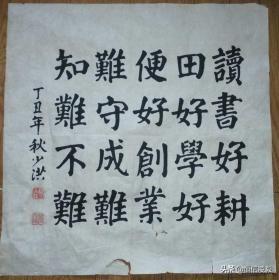 讀書好耕
田好學好
便好創業
難守成難
知難不難
丁丑年秋少洪